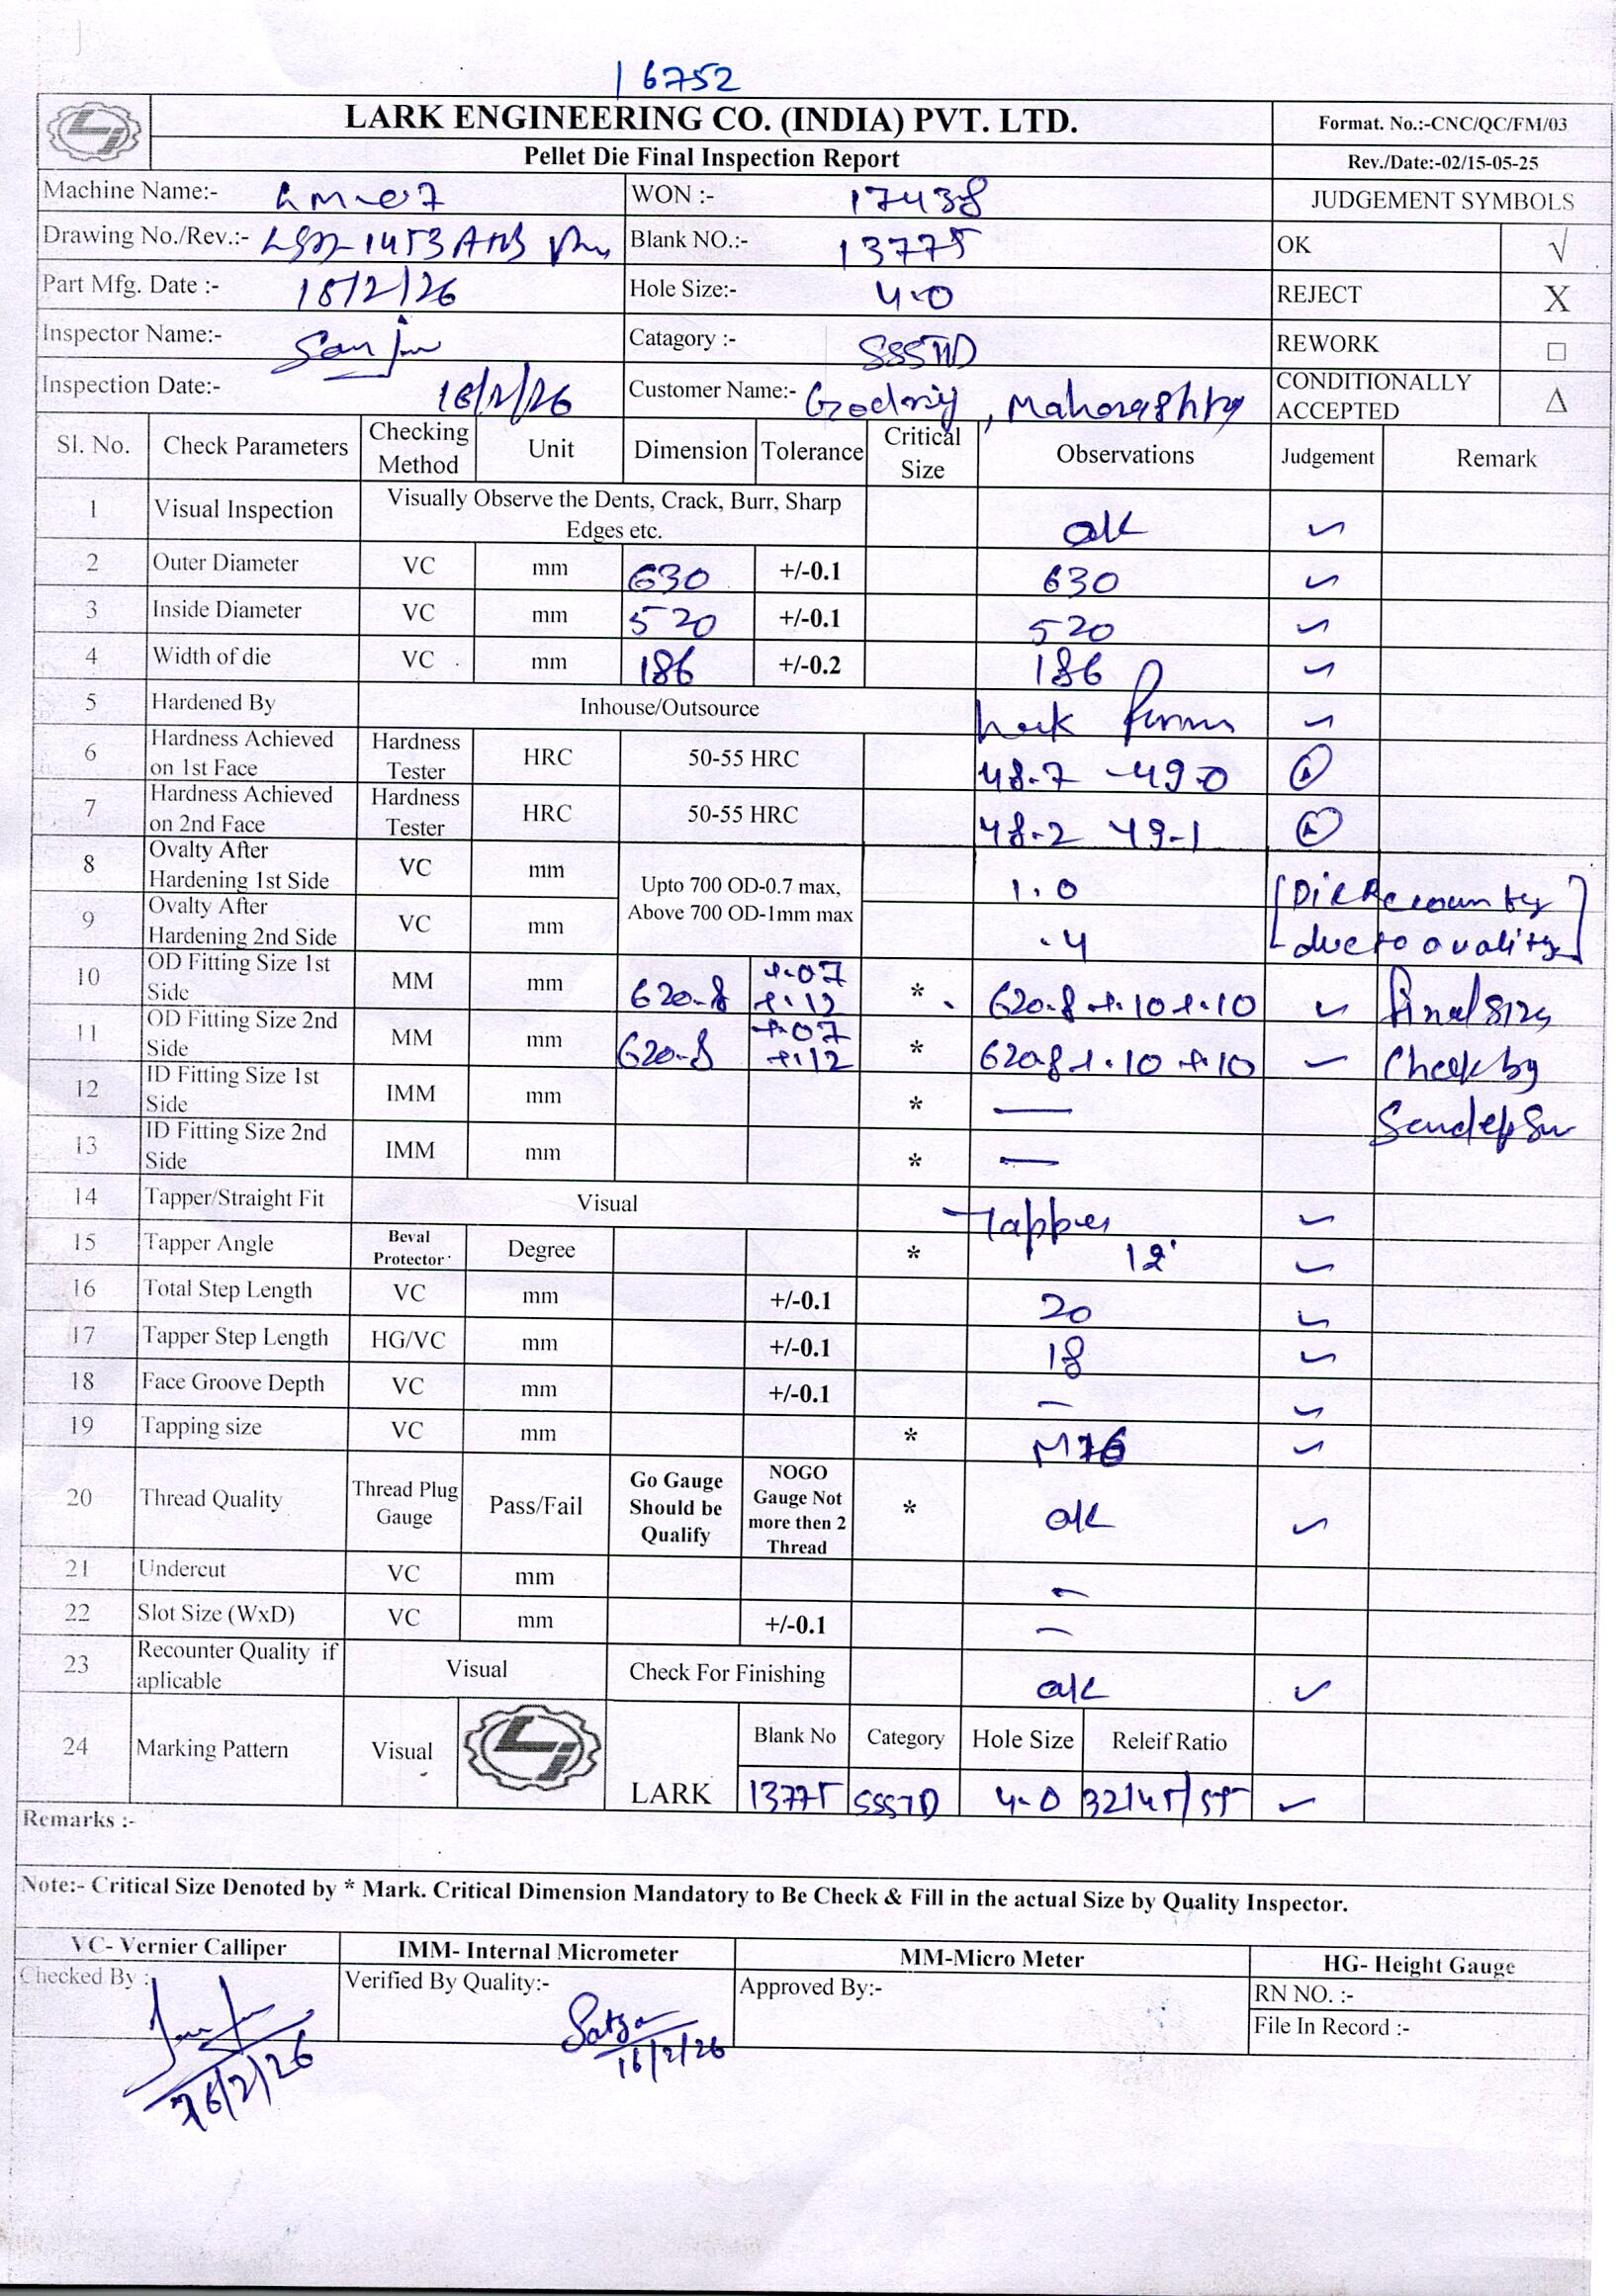 16752
LARK ENGINEERING CO. (INDIA) PVT. LTD.
Format. No.:-CNC/QC/FM/03
Pellet Die Final Inspection Report
Rev./Date:-02/15-05-25
Machine Name:- LM-07 WON :- 17438 JUDGEMENT SYMBOLS
Drawing No./Rev.:- Blank NO.:- 13775 OK √
Part Mfg. Date :- 18/2/26 Hole Size:- 4.0 REJECT X
Inspector Name:- Sanju Catagory :- SSSTD REWORK □
Inspection Date:- 16/2/26 Customer Name:- Godrej, Maharashtra CONDITIONALLY ACCEPTED Δ
Sl. No. Check Parameters Checking Method Unit Dimension Tolerance Critical Size Observations Judgement Remark
1 Visual Inspection Visually Observe the Dents, Crack, Burr, Sharp Edges etc. ok ✓
2 Outer Diameter VC mm 630 +/-0.1 630 ✓
3 Inside Diameter VC mm 520 +/-0.1 520 ✓
4 Width of die VC mm 186 +/-0.2 186 ✓
5 Hardened By Inhouse/Outsource ✓
6 Hardness Achieved on 1st Face Hardness Tester HRC 50-55 HRC 48.7 -49.0
7 Hardness Achieved on 2nd Face Hardness Tester HRC 50-55 HRC 48.2 49-1
8 Ovalty After Hardening 1st Side VC mm Upto 700 OD-0.7 max, Above 700 OD-1mm max 1.0 [Die Recounter
9 Ovalty After Hardening 2nd Side VC mm .4 due to ovality]
10 OD Fitting Size 1st Side MM mm 620.8 +.07 +.12 * 620.8 +.10 +.10 ✓ final size
11 OD Fitting Size 2nd Side MM mm 620-8 +.07 +.12 * 620.8 +.10 +.10 ✓ Check by
12 ID Fitting Size 1st Side IMM mm * — Sandeep Sir
13 ID Fitting Size 2nd Side IMM mm * —
14 Tapper/Straight Fit Visual Tapper ✓
15 Tapper Angle Beval Protector Degree * 12° ✓
16 Total Step Length VC mm +/-0.1 20 ✓
17 Tapper Step Length HG/VC mm +/-0.1 18 ✓
18 Face Groove Depth VC mm +/-0.1 — ✓
19 Tapping size VC mm * M16 ✓
20 Thread Quality Thread Plug Gauge Pass/Fail Go Gauge Should be Qualify NOGO Gauge Not more then 2 Thread * ok ✓
21 Undercut VC mm —
22 Slot Size (WxD) VC mm +/-0.1 —
23 Recounter Quality if aplicable Visual Check For Finishing ok ✓
24 Marking Pattern Visual LARK Blank No Category Hole Size Releif Ratio
13775 SSSTD 4.0 32/45/55 ✓
Remarks :-
Note:- Critical Size Denoted by * Mark. Critical Dimension Mandatory to Be Check & Fill in the actual Size by Quality Inspector.
VC- Vernier Calliper IMM- Internal Micrometer MM-Micro Meter HG- Height Gauge
Checked By : Verified By Quality:- Approved By:- RN NO. :-
File In Record :-
16/2/26 16/2/26